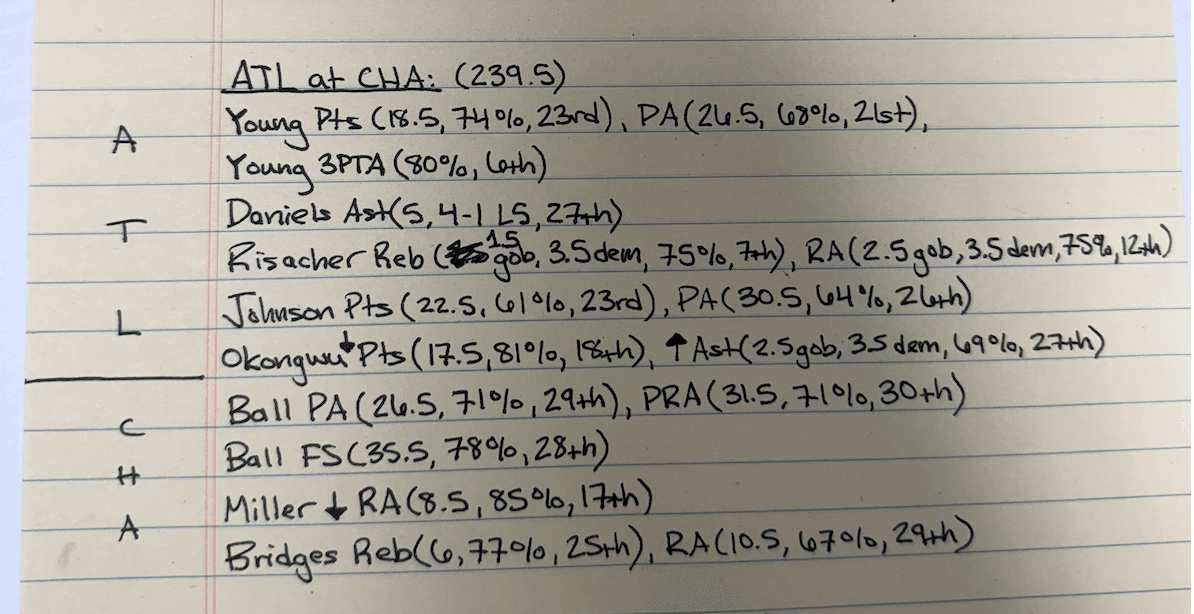 ATL at CHA: (239.5)
Young Pts (18.5, 74%, 23rd), PA (26.5, 68%, 21st),
A
Young 3PTA (80%, 6th)
T
Daniels Ast (5, 4-1 LS, 27th)
Risacher Reb (1.5 gob, 3.5 dem, 75%, 7th), RA (2.5 gob, 3.5 dem, 75%, 12th)
L
Johnson Pts (22.5, 61%, 23rd), PA (30.5, 64%, 26th)
Okongwu ↓ Pts (17.5, 81%, 18th), ↑ Ast (2.5 gob, 3.5 dem, 69%, 27th)
C
Ball PA (26.5, 71%, 29th), PRA (31.5, 71%, 30th)
H
Ball FS (35.5, 78%, 28th)
A
Miller ↓ RA (8.5, 85%, 17th)
Bridges Reb (6, 77%, 25th), RA (10.5, 67%, 29th)